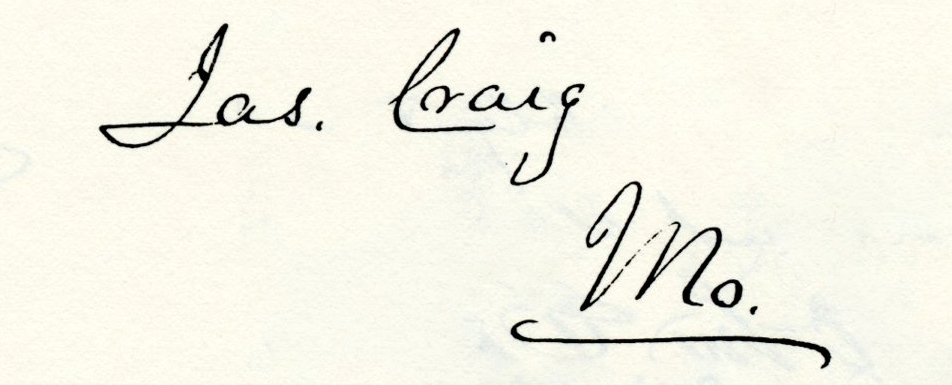 Jas. Craig
Mo.